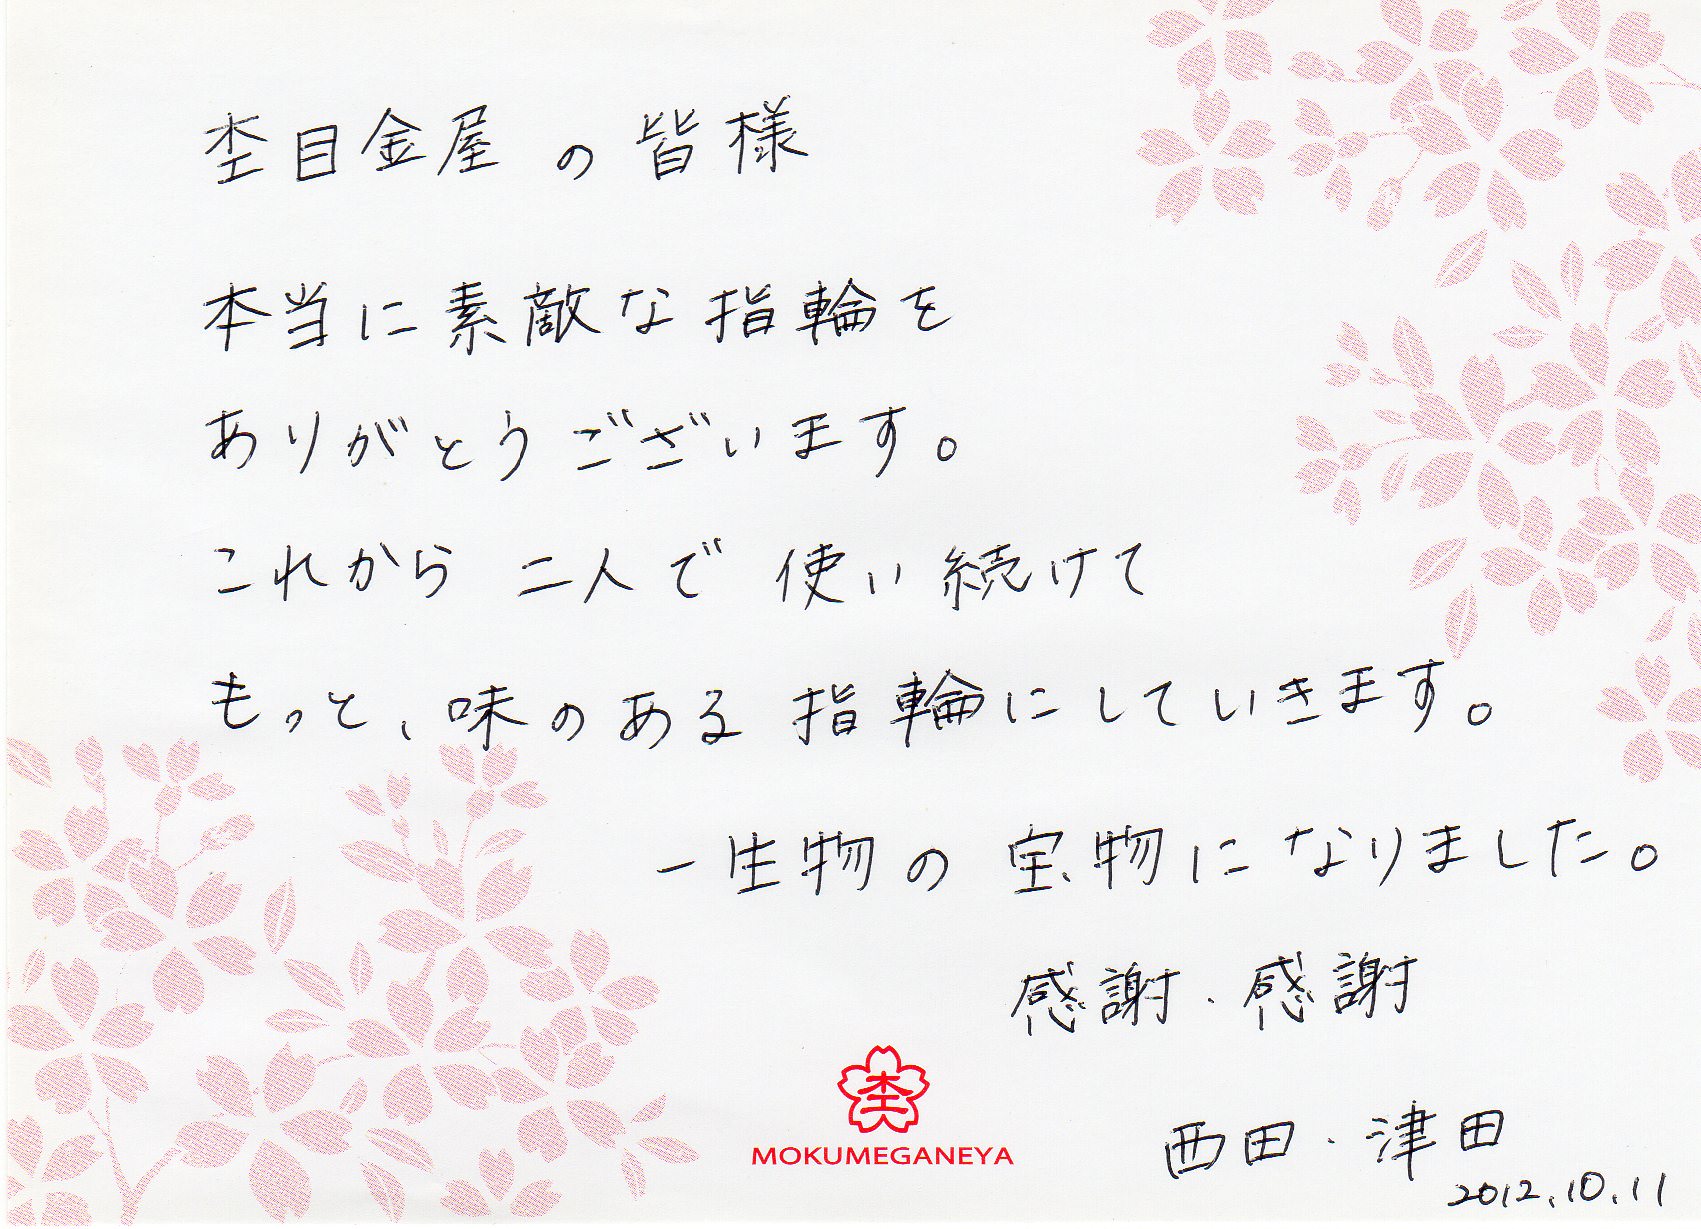 杢目金屋の皆様
本当に素敵な指輪を
ありがとうございます。
これから二人で使い続けて
もっと、味のある指輪にしていきます。
一生物の宝物になりました。
感謝・感謝
西田・津田
2012.10.11
杢
MOKUMEGANEYA